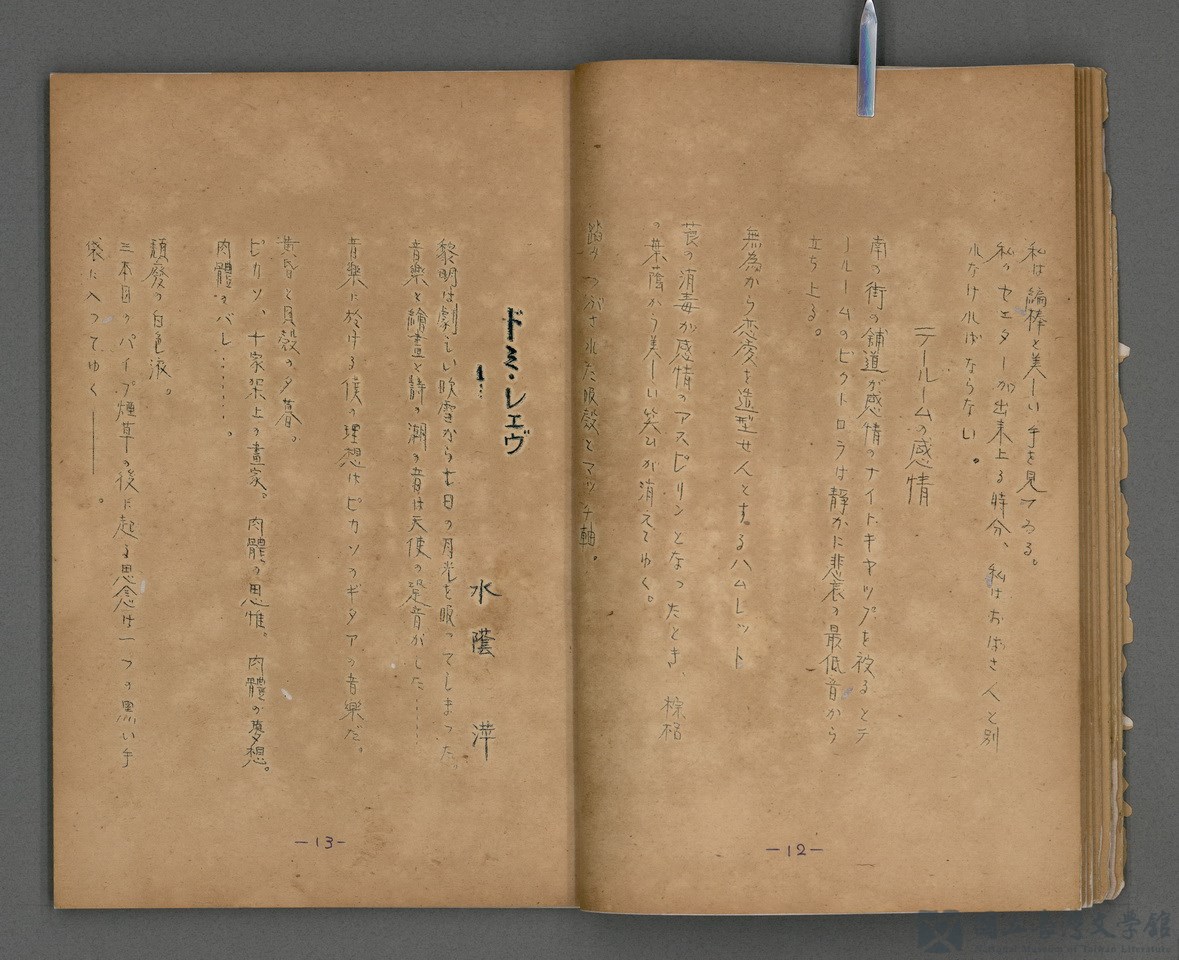 私は編棒と美しい手を見つめる。
私のセエターが出来上る時分、私はおばさんと別
れなければならない。
テールームの感情
南の街の舗道が感情のナイトキャップを被るとテ
ールームのビクトロラは静かに悲哀の最低音から
立ち上る。
無為から恋愛を造型せんとするハムレット
莨の消毒が感情のアスピリンとなったとき、棕梠
の葉蔭から美しい笑ひが消えてゆく。
踏みつぶされた眼殻とマッチ軸。
—12—
ドミ・レェヴ
1…
水蔭 萍
黎明は劇しい吹雪から七日の月光を吸ってしまった。
音樂と繪畫と詩の潮の音は天使の跫音がした……
音樂に於ける僕の理想はピカソのギタアの音樂だ。
黄昏と貝殻の夕暮。
ピカソ、十字架上の畫家。肉體の思惟。肉體の夢想。
肉體のバレ……。
頽廢の白色液。
三本目のパイプ煙草の後に起る思念は一つの黒い手
袋に入ってゆく——。
—13—
國立臺灣文學館
National Museum of Taiwan Literature